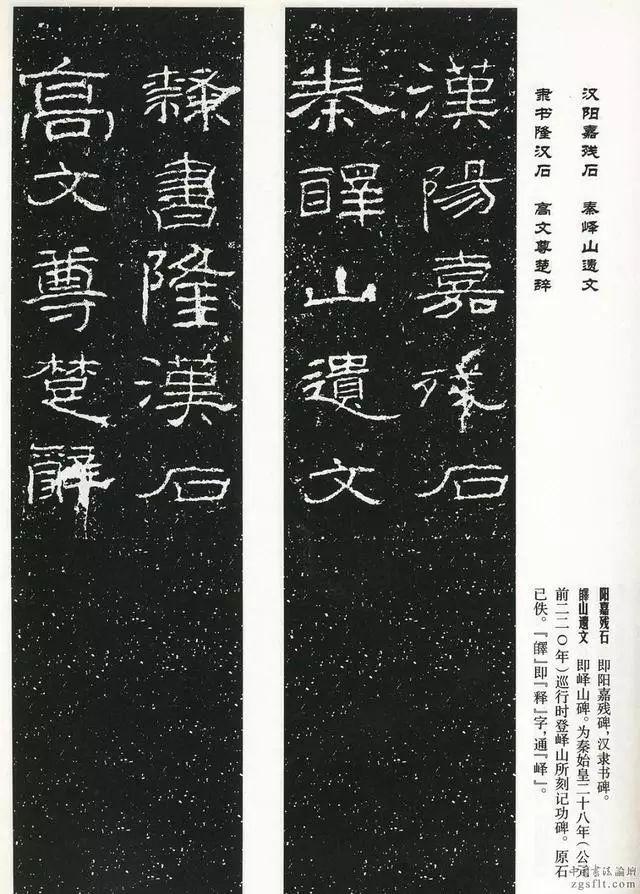 汉阳嘉残石　秦峄山遗文
隶书隆汉石　高文尊楚辞
阳嘉残石　即阳嘉残碑，汉隶书碑。
山遗文　即峄山碑。为秦始皇二十八年（公元
前二二〇年）巡行时登峄山所刻记功碑。原石
已佚。『』即『释』字，通『峄』。
漢陽嘉殘石
秦山遺文
隸書隆漢石
高文尊楚辭
中國書法論壇
zgsflt.com